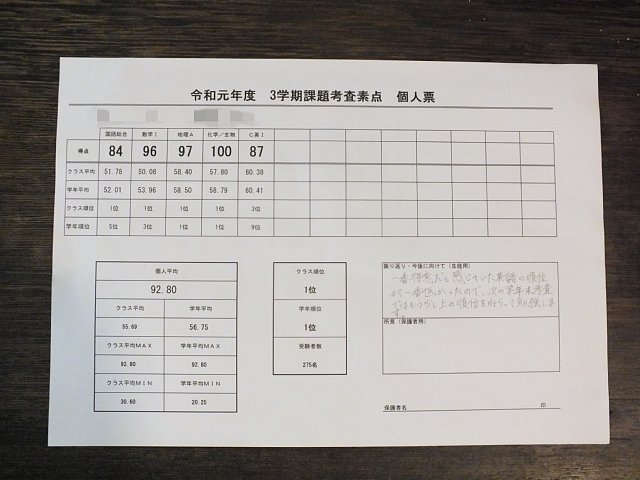 令和元年度 3学期課題考査素点 個人票
国語総合 数学Ⅰ 地理A 化学/生物 C英Ⅰ
得点 84 96 97 100 87
クラス平均 51.78 50.08 58.40 57.80 60.38
学年平均 52.01 53.96 58.50 58.79 60.41
クラス順位 1位 1位 1位 1位 3位
学年順位 5位 3位 1位 1位 9位
個人平均
92.80
クラス平均 学年平均
55.69 56.75
クラス平均MAX 学年平均MAX
92.80 92.80
クラス平均MIN 学年平均MIN
30.60 20.25
クラス順位
1位
学年順位
1位
受験者数
275名
振り返り・今後に向けて(生徒用)
一番得意だと感じていた英語の順位
が一番低かったので、次の学年末考査
ではもう少し上の順位をねらって勉強しま
す。
所見(保護者用)
保護者名 印